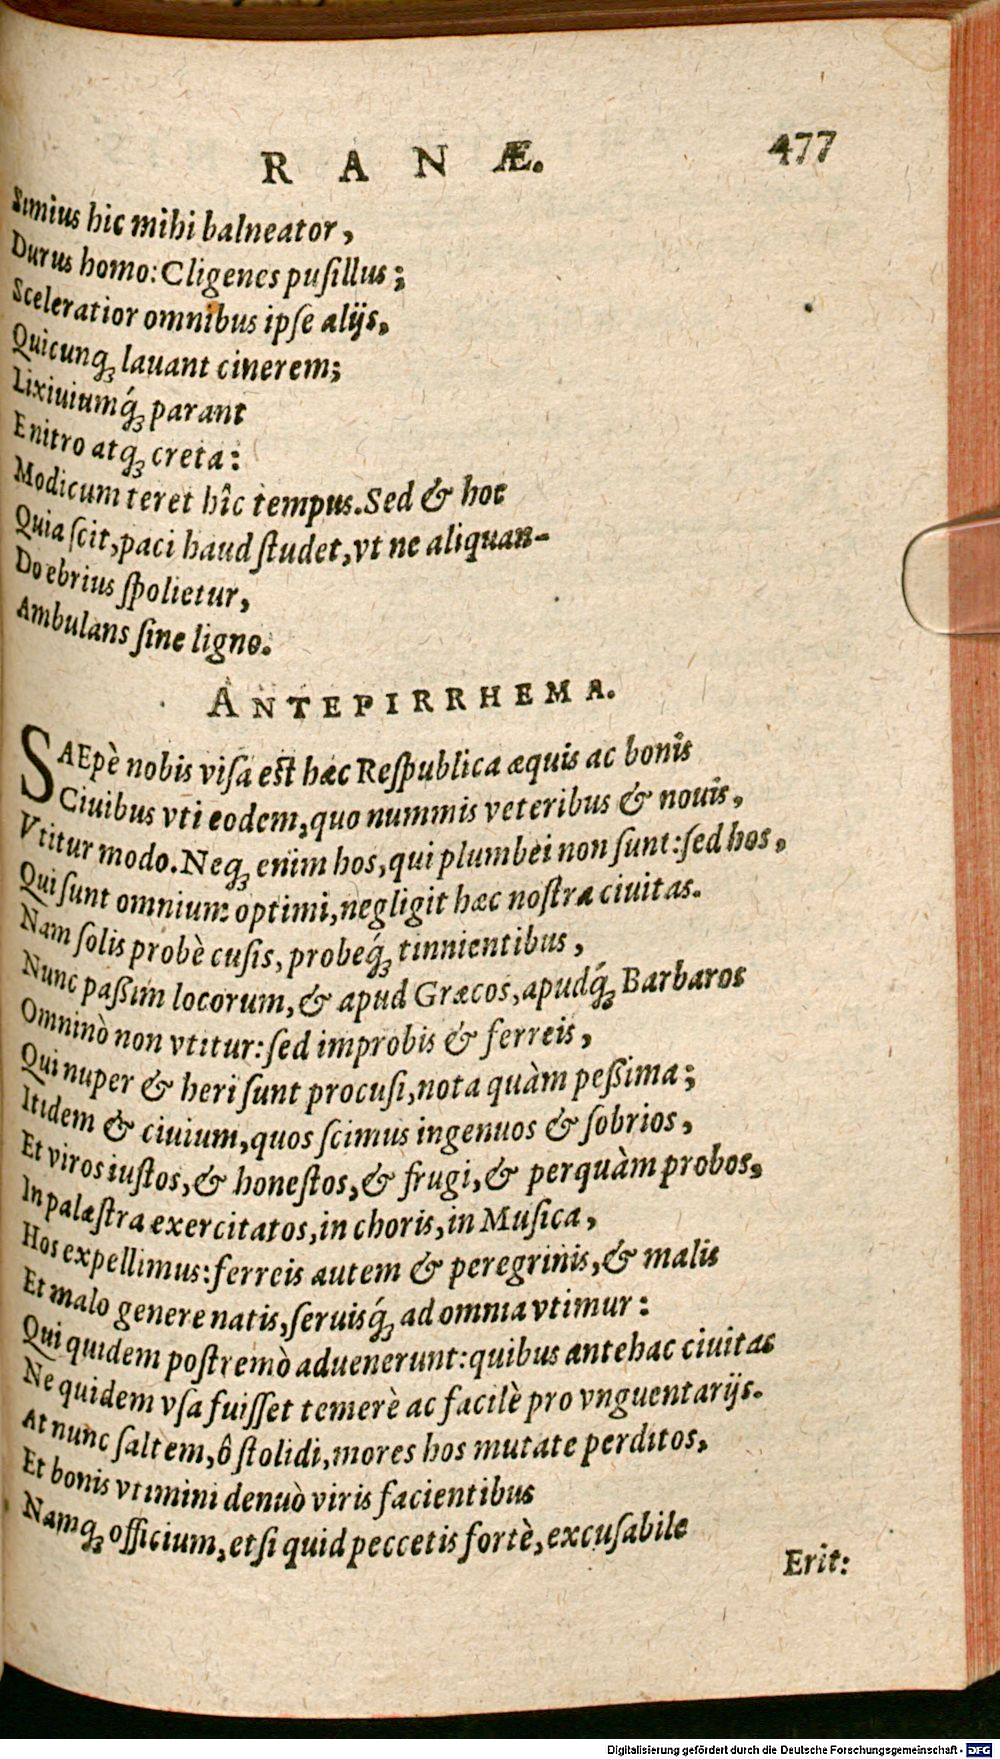 RANÆ. 477
Simius hic mihi balneator,
Durus homo: Cligenes puſillus;
Sceleratior omnibus ipſe alijs,
Quicunq; lauant cinerem;
Lixiuiumq́; parant
E nitro atq; creta:
Modicum teret hîc tempus. Sed & hoc
Quia ſcit, paci haud ſtudet, vt ne aliquan-
Do ebrius ſpolietur,
Ambulans ſine ligno.
ANTEPIRRHEMA.
SAEpè nobis viſa est hæc Reſpublica æquis ac bonis
Ciuibus vti eodem, quo nummis veteribus & nouis,
Vtitur modo. Neq; enim hos, qui plumbei non ſunt: ſed hos,
Qui ſunt omnium optimi, negligit hæc noſtra ciuitas.
Nam ſolis probè cuſis, probeq́; tinnientibus,
Nunc paßim locorum, & apud Græcos, apudq́; Barbaros
Omninò non vtitur: ſed improbis & ferreis,
Qui nuper & heri ſunt procuſi, nota quàm peßima;
Itidem & ciuium, quos ſcimus ingenuos & ſobrios,
Et viros iuſtos, & honeſtos, & frugi, & perquàm probos,
In palæſtra exercitatos, in choris, in Muſica,
Hos expellimus: ferreis autem & peregrinis, & malis
Et malo genere natis, ſeruisq́; ad omnia vtimur:
Qui quidem poſtremò aduenerunt: quibus antehac ciuitas
Ne quidem vſa fuiſſet temerè ac facilè pro vnguentarijs.
At nunc ſaltem, ô ſtolidi, mores hos mutate perditos,
Et bonis vtimini denuò viris facientibus
Namq; officium, etſi quid peccetis fortè, excuſabile
Erit:
Digitalisierung gefördert durch die Deutsche Forschungsgemeinschaft - DFG